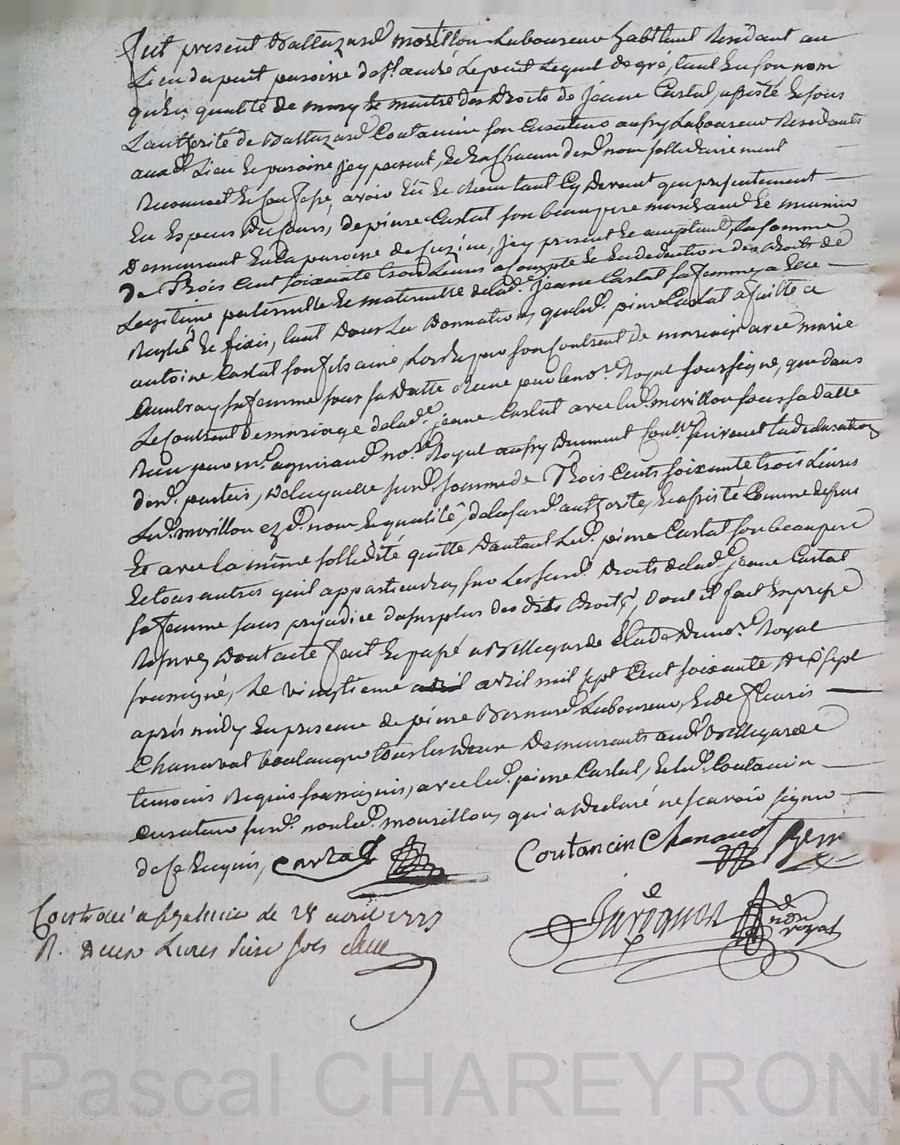 Fut present Baltazard morillon Laboureur habitant Residant au
Lieu du peuit paroisse de st andré Lequel de gré, tant en son nom
qu'en qualité de mary et maitre des Droits de Jeane Castal, assisté et sous
L'authorité de Baltazard Coutancin son Curateur aussy Laboureur Residants
aud. Lieu et paroisse icy present, et un chacun d'eux nom sollidairement
Reconnoit et Confesse avoir Eü et Receu tant Cy Devant que presentement
En Especes Du Cours, de pierre Castal son beaupere marchand et munier
Demeurant En La paroisse de icy present et acceptant, La somme
De Trois Cent soixante trois Livres a Compte et En deduction des Droits de
Legitime paternelle et maternelle de lad. Jeane Castal sa femme a Elle
Reglés et fixés, tant Dans La Donnation que led. pierre Castal a faitte a
antoine Castal son fils ainé, Lors du pnt son Contract de mariaige avec marie
sa femme sous sa Datte Receue pnt le no.re Royal soussigné, que dans
Le Contract de mariaige de lad. jeane Castal avec led. morillon sous sa datte
Receu par m.e no.re Royal aussy Dument suivant la declaration
des. parties, De laquelle sus. somme de Trois Cents soixante trois Livres
Led. morillon ez d. nom et qualité, de la sus. authorité, et assisté Comme dessus
Et avec la même sollidité quitte D'autant Led. pierre Castal son beaupere
et tous autres qu'il appartiendra, sur Les sus. Droits de lad. jeane Castal
sa femme sans prejudice du surplus des dits Droits, Dont il fait Expresse
Reserve, Dont acte fait et passé a Villegarde Etude Du no.re Royal
soussigné, Le vingtieme avril avril mil sept Cent soixante Dix sept
après midy En presence de pierre Bernard Laboureur, et de fleuris
Chanaval boulanger tous les deux Demeurants aud. Villegarde
temoins Requis soussignés, avec led. pierre Castal, et led. Coutancin
curateur sus. non led. mourillon, qui a Declaré ne scavoir signer
de ce Enquis, Castal
Coutancin Chanaval Bern
Juvignon no.re royal
Controllé a le 28 avril 1777
R. Deux Livres seize sols
Pascal CHAREYRON